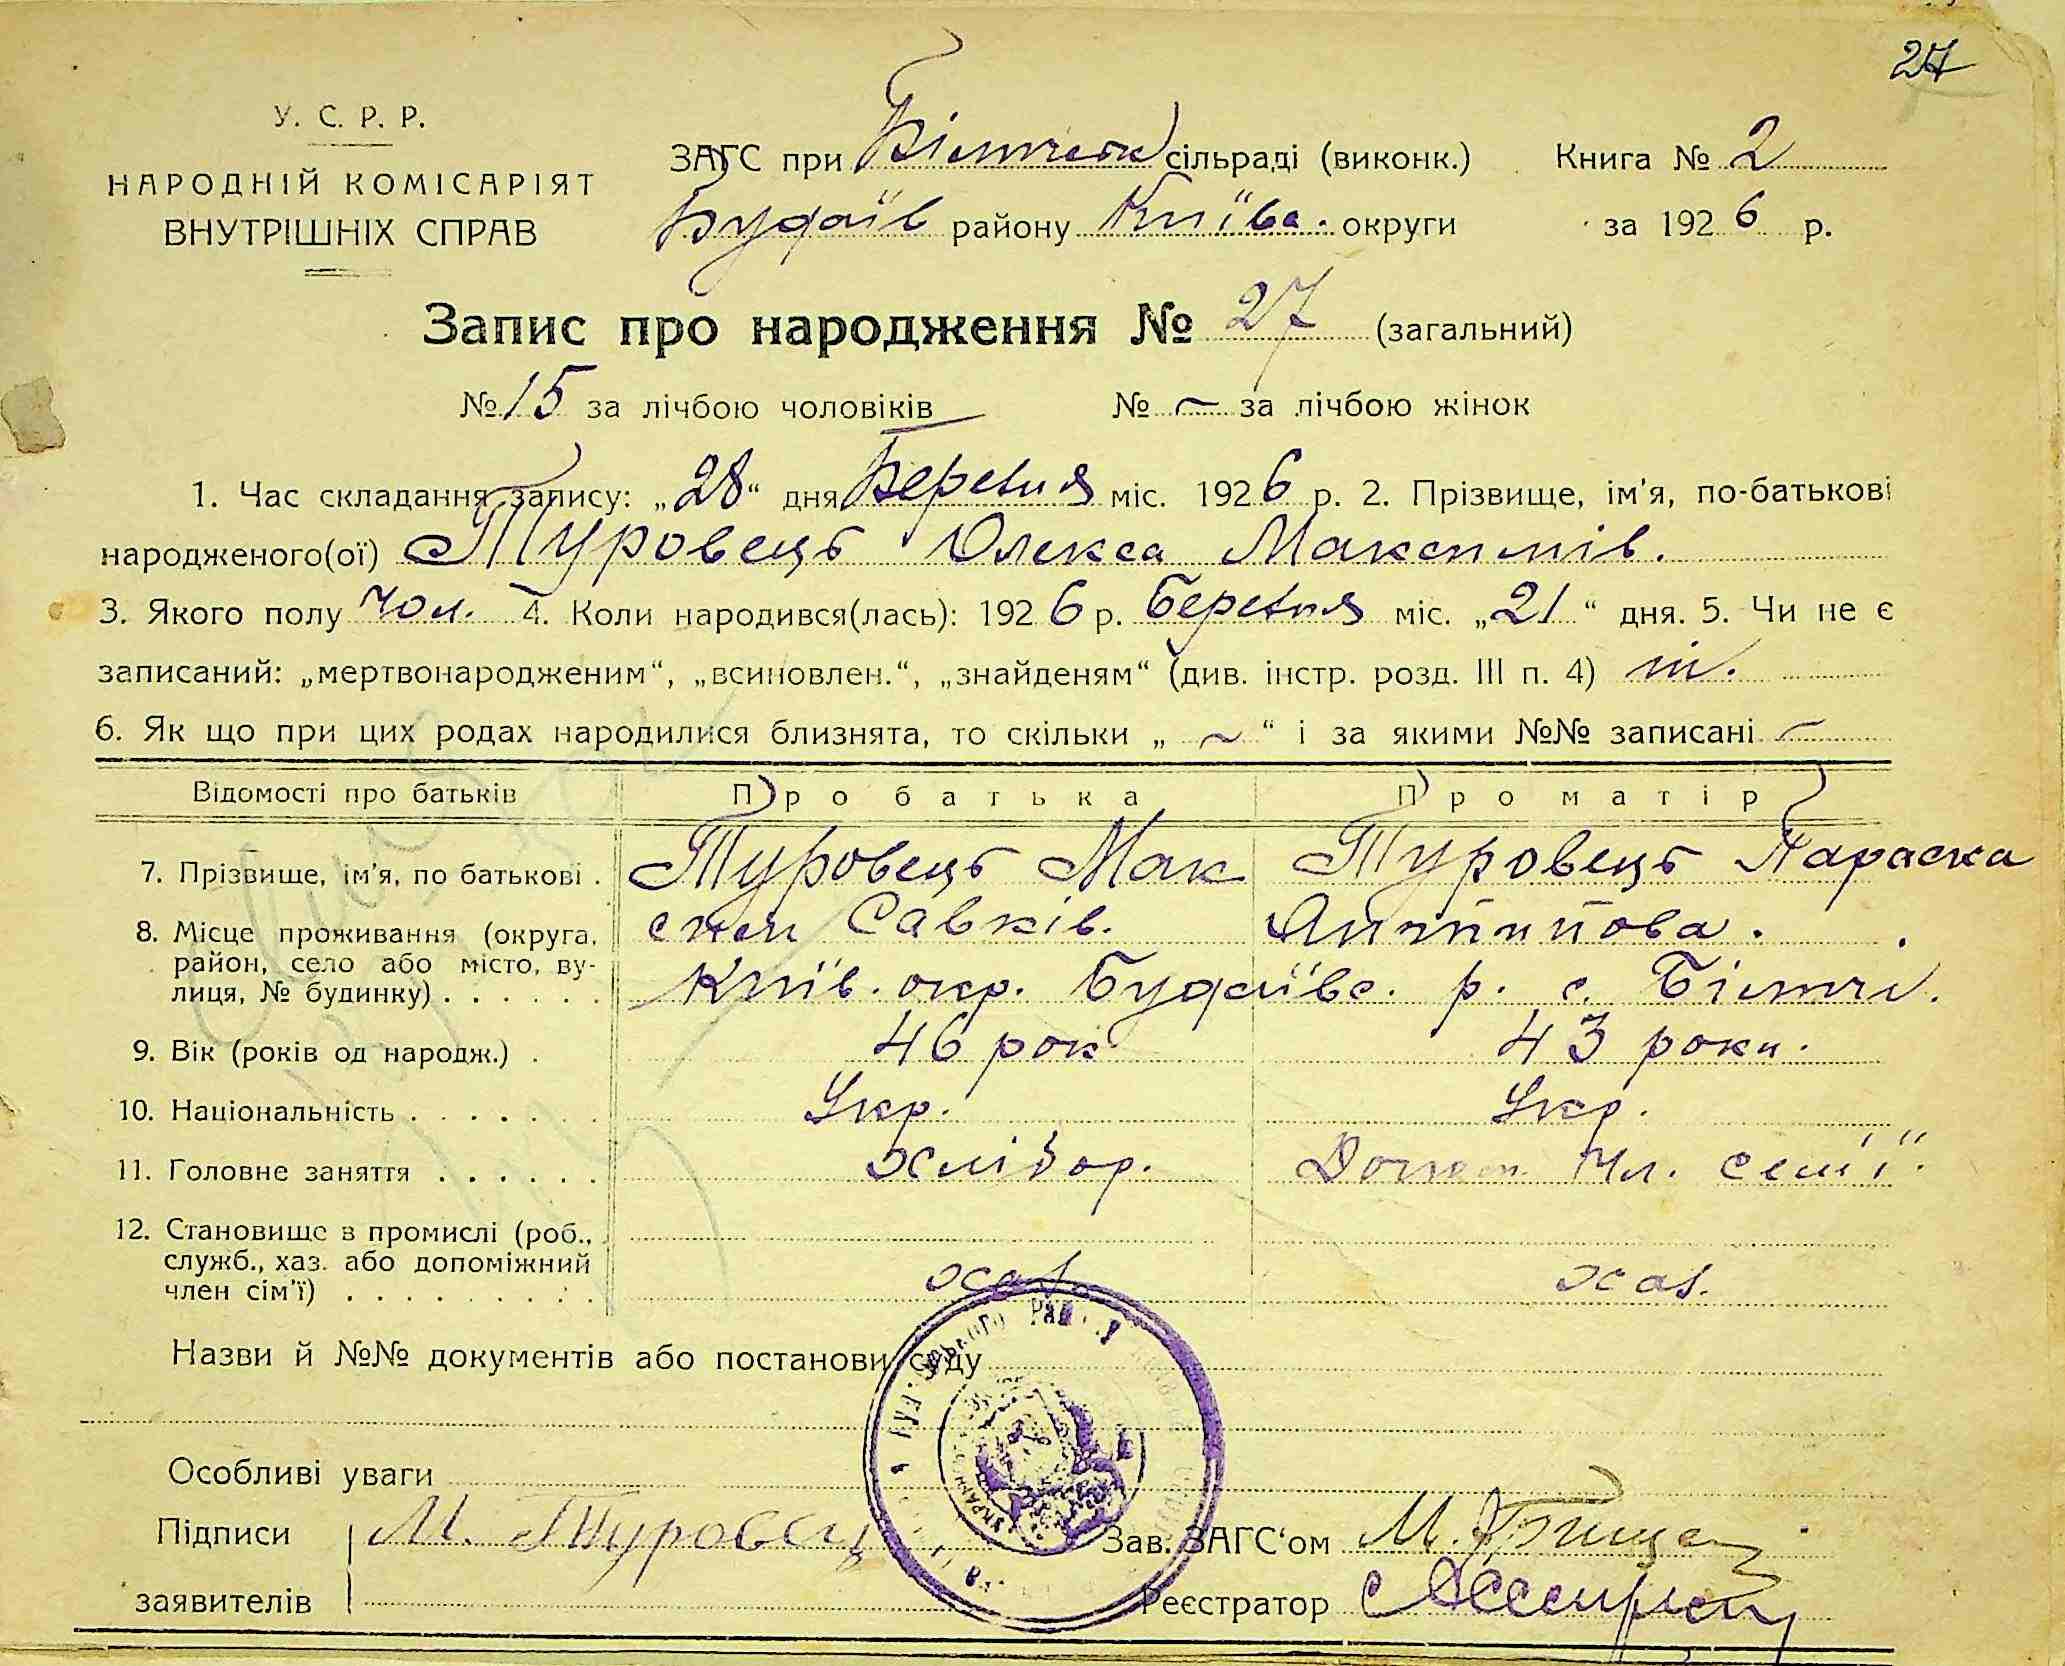 27
У. С. Р. Р.
НАРОДНІЙ КОМІСАРІЯТ
ВНУТРІШНІХ СПРАВ
ЗАГС при сільраді (виконк.) Книга № 2
Будаїв району Київс. округи за 1926 р.
Запис про народження № 27 (загальний)
№ 15 за лічбою чоловіків № — за лічбою жінок
1. Час складання запису: „28“ дня Березня міс. 1926 р. 2. Прізвище, ім'я, по-батькові
народженого(ої) Туровець Олекса Максимів.
3. Якого полу чол. 4. Коли народився(лась): 1926 р. березня міс. „21“ дня. 5. Чи не є
записаний: „мертвонародженим“, „всиновлен.“, „знайденям“ (див. інстр. розд. III п. 4) ні.
6. Як що при цих родах народилися близнята, то скільки „ ~ “ і за якими №№ записані —
Відомості про батьків Про батька Про матір
7. Прізвище, ім'я, по батькові . Туровець Мак Туровець Параска
сим Савків. Антипова.
8. Місце проживання (округа, район, село або місто, ву-
лиця, № будинку) . . . . . . Київ. окр. Будаївс. р. с. Білтчі.
9. Вік (років од народж.) . 46 рок 43 роки.
10. Національність . . . . . . . Укр. Укр.
11. Головне заняття . . . . . . хлібор. Допом. чл. семʼї.
12. Становище в промислі (роб.,
служб., хаз. або допоміжний
член сім'ї) . . . . . . . . . хаз. хаз.
Назви й №№ документів або постанови суду
Особливі уваги
Підписи М. Туровець Зав. ЗАГС'ом М.
заявителів Реєстратор